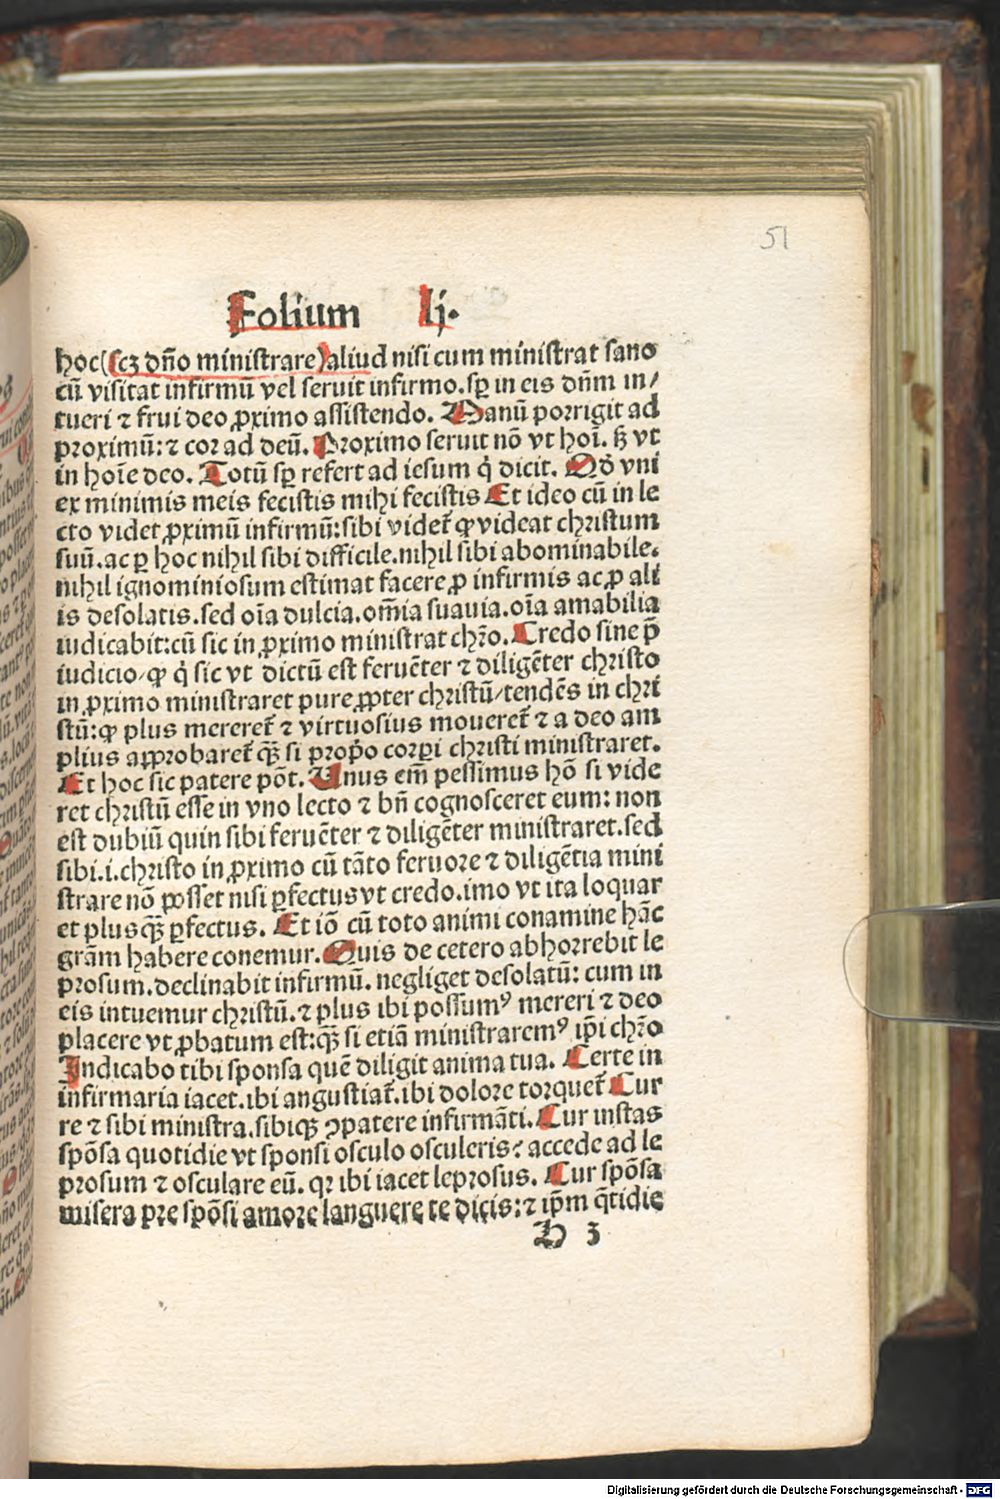 51
Folium lj.
hoc (scꝫ dn̄o ministrare) aliud nisi cum ministrat sano
cū visitat infirmū vel seruit infirmo. sꝑ in eis dn̄m in/
tueri ⁊ frui deo ꝓximo assistendo. Manū porrigit ad
proximū: ⁊ cor ad deū. Proximo seruit nō vt hoī. sꝫ vt
in hoīe deo. Totū sꝑ refert ad iesum q̇ dicit. Qḋ vni
ex minimis meis fecistis mihi fecistis Et ideo cū in le
cto videt ꝓximū infirmū: sibi videt̄ ꝙ videat christum
suū. ac ꝑ hoc nihil sibi difficile. nihil sibi abominabile.
nihil ignominiosum estimat facere ꝓ infirmis ac ꝓ ali
is desolatis. sed oīa dulcia. om̄ia suauia. oīa amabilia
iudicabit: cū sic in ꝓximo ministrat chr̄o. Credo sine p̄
iudicio/ ꝙ q̇ sic vt dictū est feruēter ⁊ diligēter christo
in ꝓximo ministraret pure ꝓpter christū/ tendēs in chri
stū: ꝙ plus mereret̄ ⁊ virtuosius moueret̄ ⁊ a deo am
plius approbaret̄ qꝫ̄ si propo̓ corꝑi christi ministraret.
Et hoc sic patere pōt. Unus em̄ pessimus hō si vide
ret christū esse in vno lecto ⁊ bn̄ cognosceret eum: non
est dubiū quin sibi feruēter ⁊ diligēter ministraret. sed
sibi .i. christo in ꝓximo cū tāto feruore ⁊ diligētia mini
strare nō posset nisi ꝑfectus vt credo. imo vt ita loquar
et plusqꝫ̄ ꝑfectus. Et iō cū toto animi conamine hāc
grām habere conemur. Quis de cetero abhorrebit le
prosum. declinabit infirmū. negliget desolatū: cum in
eis intuemur christū. ⁊ plus ibi possumꝰ mereri ⁊ deo
placere vt ꝓbatum est: qꝫ̄ si etiā ministraremꝰ ip̄i chr̄o
Indicabo tibi sponsa quē diligit anima tua. Certe in
infirmaria iacet. ibi angustiat̄. ibi dolore torquet̄ Cur
re ⁊ sibi ministra. sibiqꝫ ꝯpatere infirmāti. Cur instas
spōsa quotidie vt sponsi osculo osculeris? accede ad le
prosum ⁊ osculare eū. qꝛ ibi iacet leprosus. Cur spōsa
misera pre spōsi amore languere te dicis: ⁊ ip̄m q̄tidie
H 3
Digitalisierung gefördert durch die Deutsche Forschungsgemeinschaft - DFG